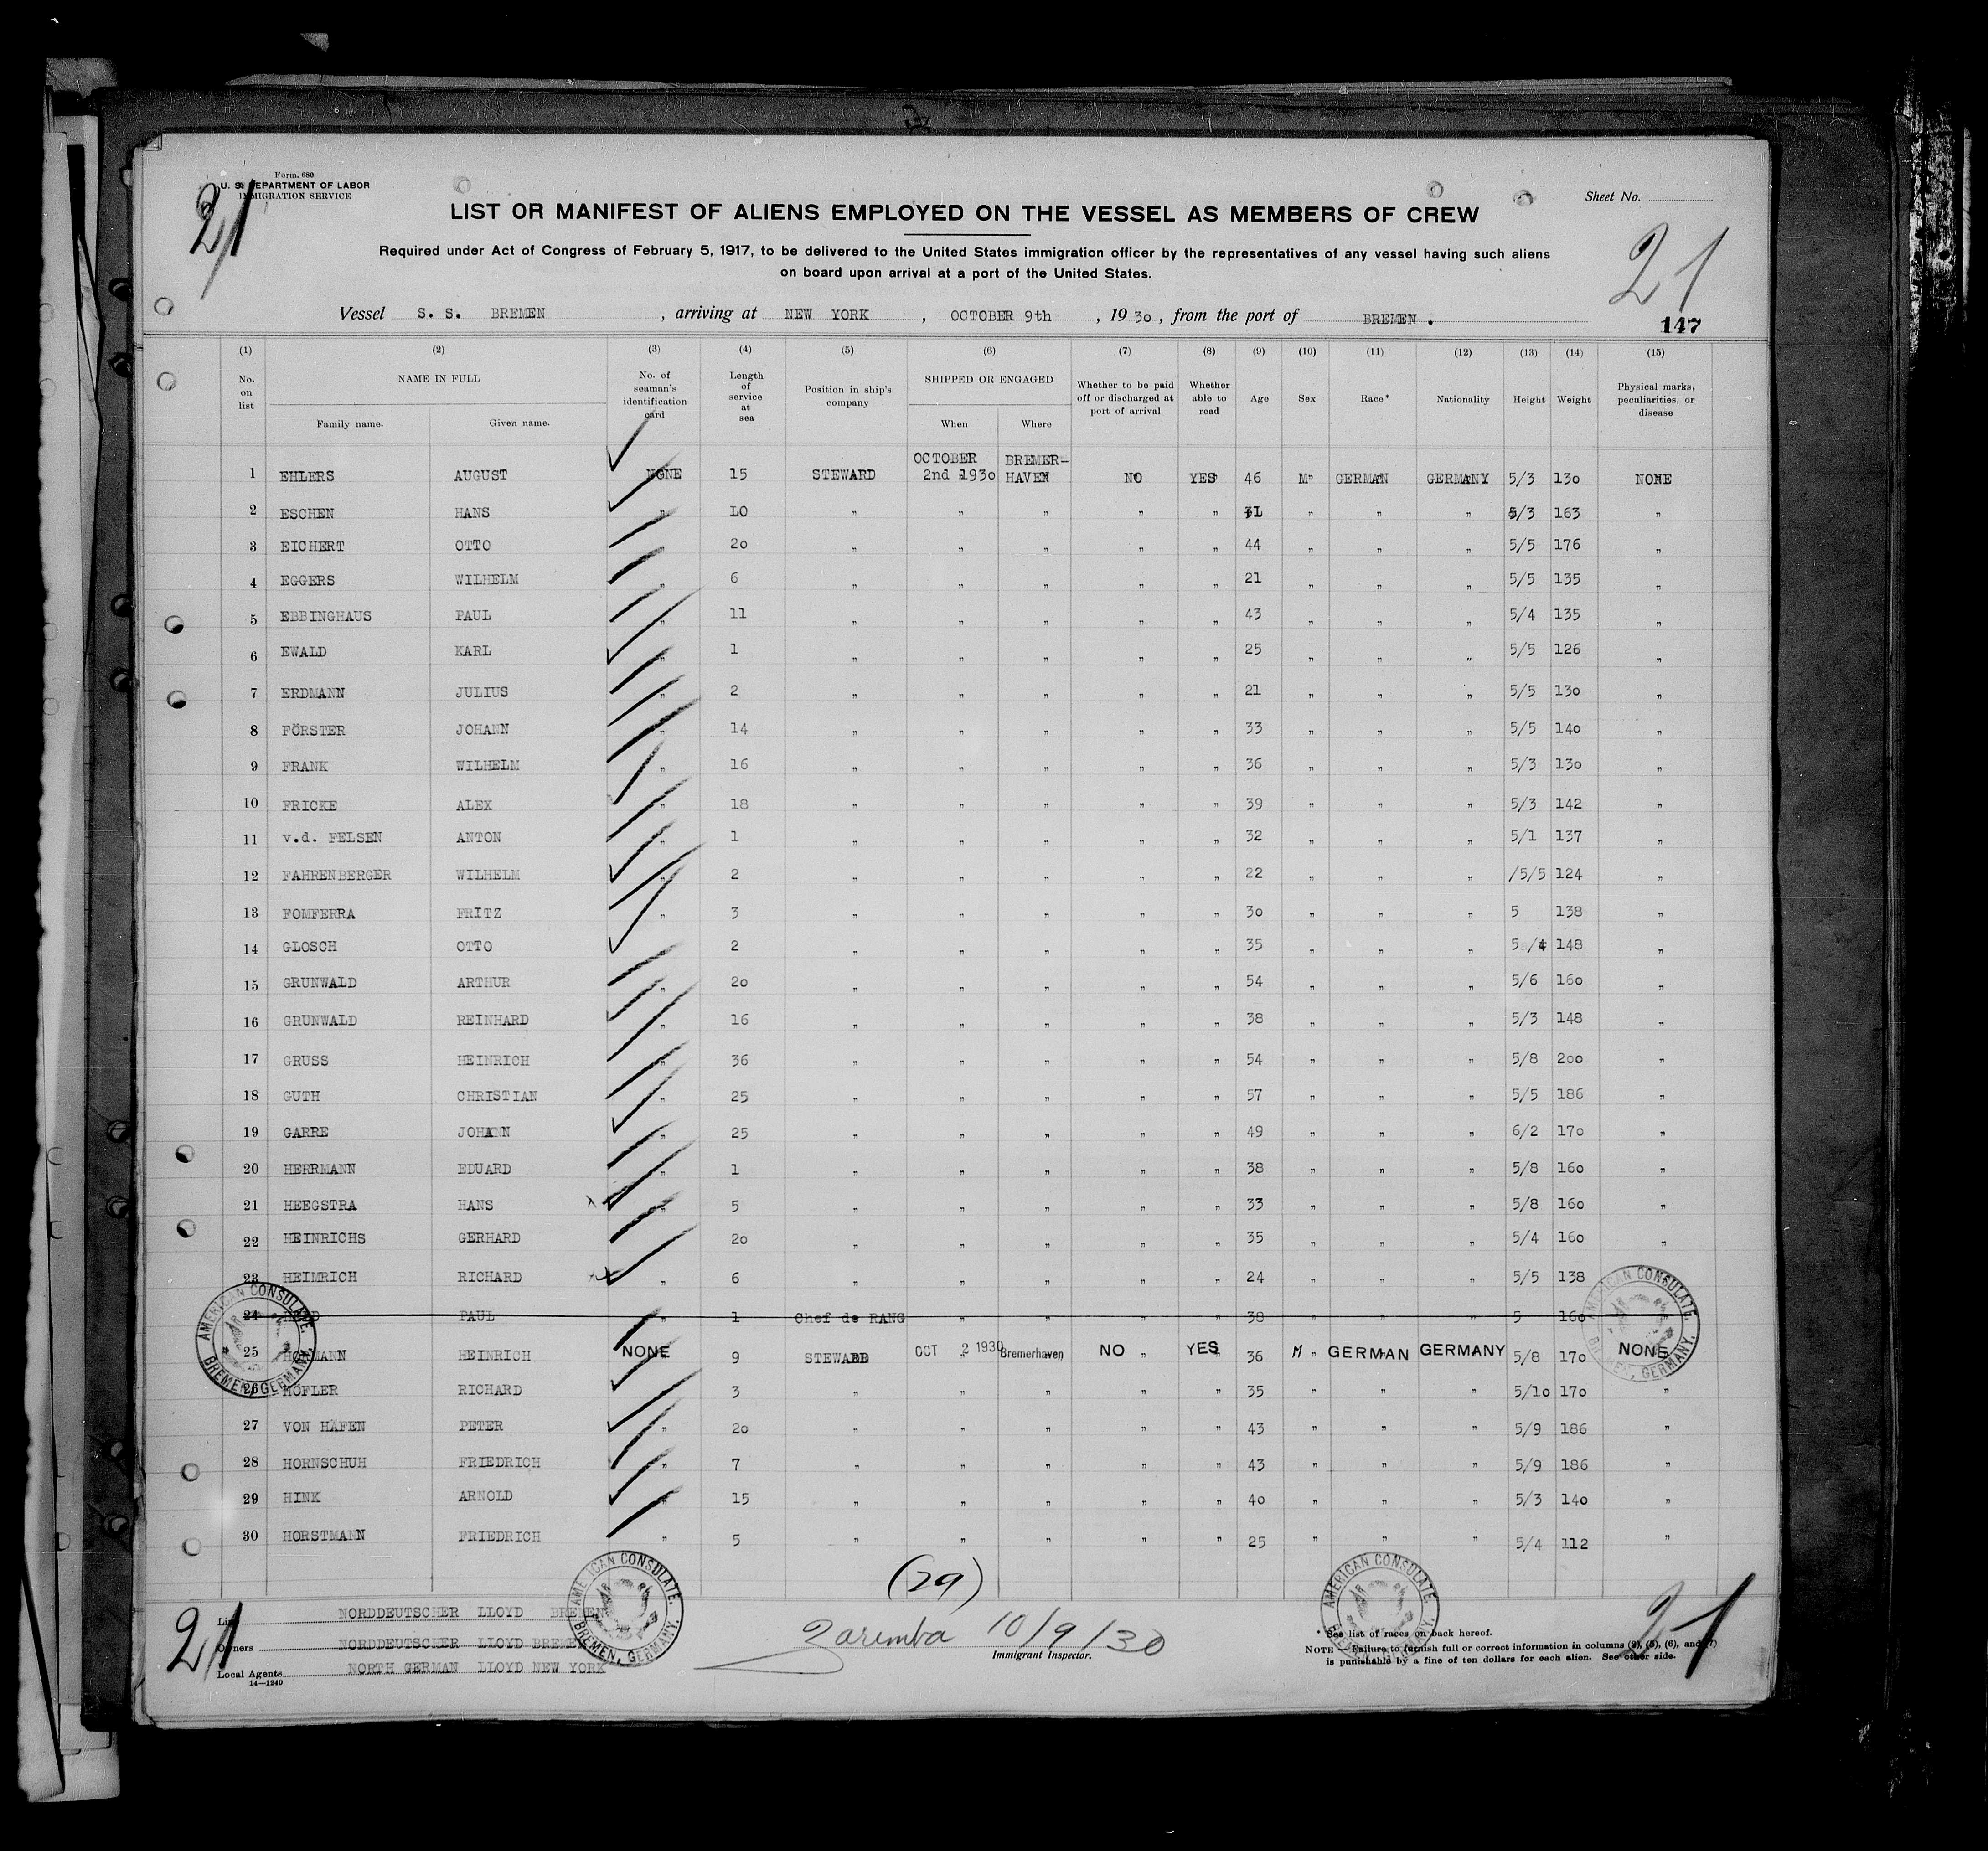 Form. 680
U. S. DEPARTMENT OF LABOR
IMMIGRATION SERVICE
21
Sheet No.
LIST OR MANIFEST OF ALIENS EMPLOYED ON THE VESSEL AS MEMBERS OF CREW
Required under Act of Congress of February 5, 1917, to be delivered to the United States immigration officer by the representatives of any vessel having such aliens
on board upon arrival at a port of the United States.
21
Vessel S. S. BREMEN , arriving at NEW YORK , OCTOBER 9th , 1930 , from the port of BREMEN .
147
(1) (2) (3) (4) (5) (6) (7) (8) (9) (10) (11) (12) (13) (14) (15)
No. on list NAME IN FULL Family name. Given name. No. of seaman's identification card Length of service at sea Position in ship's company SHIPPED OR ENGAGED When Where Whether to be paid off or discharged at port of arrival Whether able to read Age Sex Race* Nationality Height Weight Physical marks, peculiarities, or disease
1 EHLERS AUGUST NONE 15 STEWARD OCTOBER 2nd 1930 BREMER-HAVEN NO YES 46 M" GERMAN GERMANY 5/3 130 NONE
2 ESCHEN HANS " 10 " " " " " 31 " " " 5/3 163 "
3 EICHERT OTTO " 20 " " " " " 44 " " " 5/5 176 "
4 EGGERS WILHELM " 6 " " " " " 21 " " " 5/5 135 "
5 EBBINGHAUS PAUL " 11 " " " " " 43 " " " 5/4 135 "
6 EWALD KARL " 1 " " " " " 25 " " " 5/5 126 "
7 ERDMANN JULIUS " 2 " " " " " 21 " " " 5/5 130 "
8 FÖRSTER JOHANN " 14 " " " " " 33 " " " 5/5 140 "
9 FRANK WILHELM " 16 " " " " " 36 " " " 5/3 130 "
10 FRICKE ALEX " 18 " " " " " 39 " " " 5/3 142 "
11 v.d. FELSEN ANTON " 1 " " " " " 32 " " " 5/1 137 "
12 FAHRENBERGER WILHELM " 2 " " " " " 22 " " " /5/5 124 "
13 FOMFERRA FRITZ " 3 " " " " " 30 " " " 5 138 "
14 GLOSCH OTTO 2 " " " " " 35 " " " 5 /4 148 "
15 GRUNWALD ARTHUR " 20 " " " " " 54 " " " 5/6 160 "
16 GRUNWALD REINHARD " 16 " " " " " 38 " " " 5/3 148 "
17 GRUSS HEINRICH " 36 " " " " " 54 " " " 5/8 200 "
18 GUTH CHRISTIAN " 25 " " " " " 57 " " " 5/5 186 "
19 GARRE JOHANN 25 " " " " " 49 " " " 6/2 170 "
20 HERRMANN EDUARD " 1 " " " " " 38 " " " 5/8 160 "
21 HEEGSTRA HANS x " 5 " " " " " 33 " " " 5/8 160 "
22 HEINRICHS GERHARD 20 " " " " " 35 " " " 5/4 160 "
23 HEIMRICH RICHARD x " 6 " " " " " 24 " " " 5/5 138
24 PAUL " 1 Chef de RANG " " " " 38 " " " 5 160
25 HEINRICH NONE 9 STEWARD OCT 2 1930 Bremerhaven NO " YES 36 M " GERMAN GERMANY 5/8 170 NONE
26 HÖFLER RICHARD 3 " " " " " 35 " " " 5/10 170 "
27 VON HÄFEN PETER " 20 " " " " " 43 " " " 5/9 186 "
28 HORNSCHUH FRIEDRICH " 7 " " " " " 43 " " " 5/9 186 "
29 HINK ARNOLD 15 " " " " " 40 " " " 5/3 140 "
30 HORSTMANN FRIEDRICH " 5 " " " " " 25 " " " 5/4 112 "
AMERICAN CONSULATE. BREMEN, GERMANY.
AMERICAN CONSULATE. BREMEN, GERMANY.
(29)
AMERICAN CONSULATE. BREMEN, GERMANY.
AMERICAN CONSULATE. BREMEN, GERMANY.
21
Line NORDDEUTSCHER LLOYD BREMEN
Owners NORDDEUTSCHER LLOYD BREMEN
Local Agents NORTH GERMAN LLOYD NEW YORK
14—1240
Zaremba 10/9/30
Immigrant Inspector.
* See list of races on back hereof.
NOTE.—Failure to furnish full or correct information in columns (2), (5), (6), and (7)
is punishable by a fine of ten dollars for each alien. See other side.
21